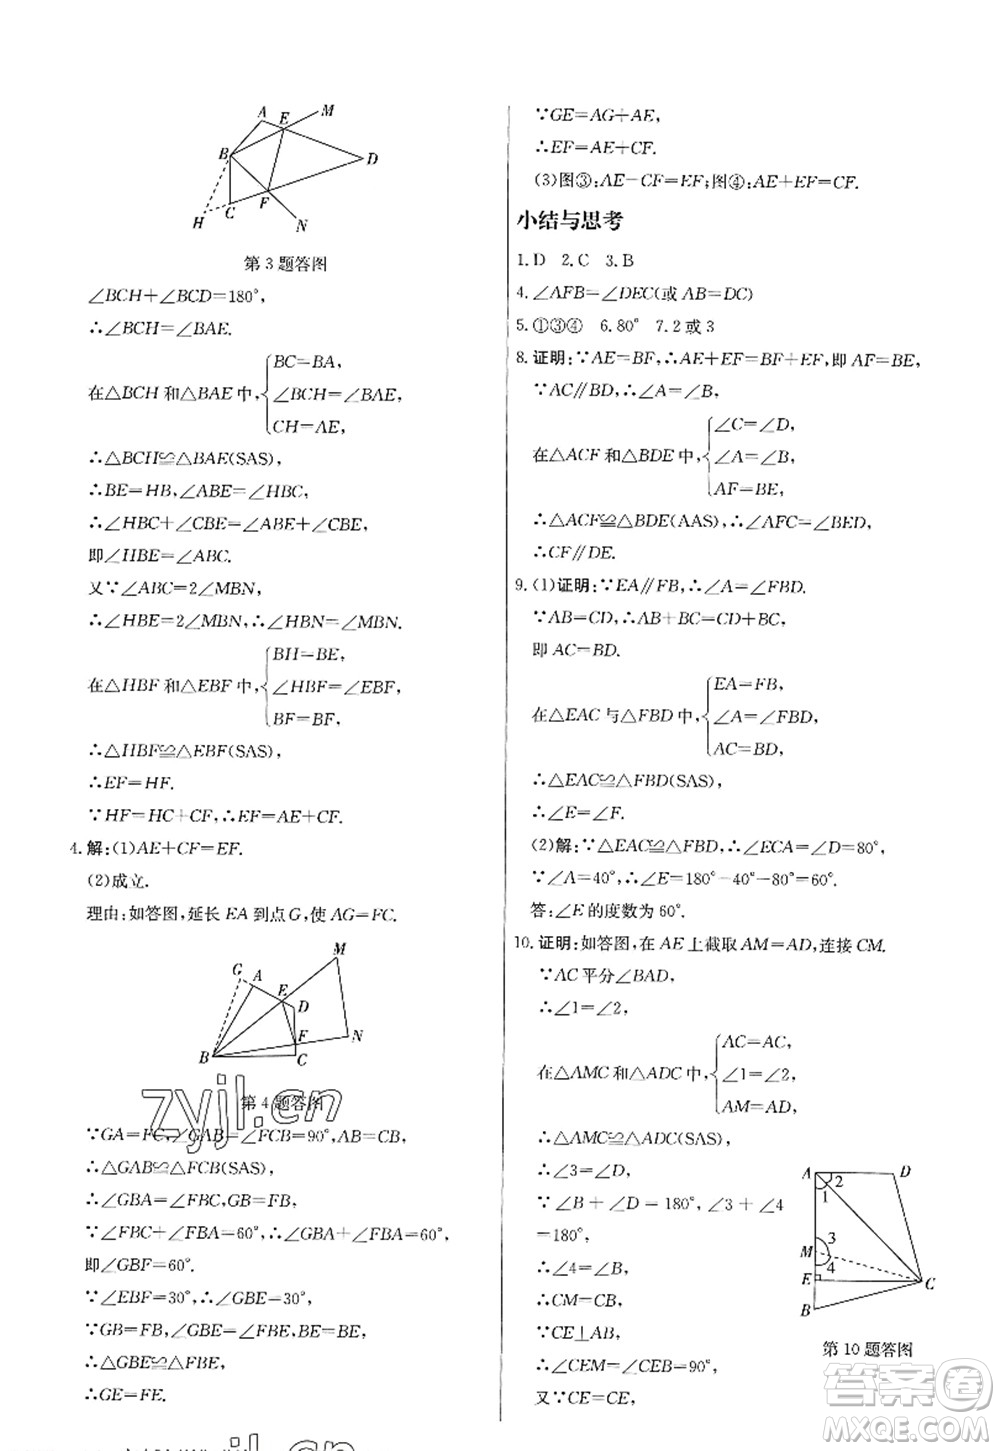 A
E
M
B
D
H
C
F
N
第3题答图
∠BCH+∠BCD=180°,
∴∠BCH=∠BAE.
在△BCH和△BAE中,{BC=BA,
∠BCH=∠BAE,
CH=AE,
∴△BCH≌△BAE(SAS)
∴BE=HB,∠ABE=∠HBC,
∴∠HBC+∠CBE=∠ABE+∠CBE,
即∠HBE=∠ABC.
又∵∠ABC=2∠MBN,
∴∠HBE=2∠MBN,∴∠HBN=∠MBN.
在△HBF和△EBF中,{BH=BE,
∠HBF=∠EBF,
BF=BF,
∴△HBF≌△EBF(SAS)
∴EF=HF.
∵HF=HC+CF,∴EF=AE+CF.
4. 解:(1)AE+CF=EF.
(2)成立.
理由:如答图,延长EA到点G,使AG=FC.
G
A
E
M
D
F
N
B
C
第4题答图
∵GA=FC,∠GAB=∠FCB=90°,AB=CB,
∴△GAB≌△FCB(SAS)
∴∠GBA=∠FBC,GB=FB,
∵∠FBC+∠FBA=60°,∴∠GBA+∠FBA=60°,
即∠GBF=60°.
∵∠EBF=30°,∴∠GBE=30°,
∵GB=FB,∠GBE=∠FBE,EB=EB,
∴△GBE≌△FBE,
∴GE=FE.
∵GE=AG+AE,
∴EF=AE+CF.
(3)图③:AE−CF=EF;图④:AE+EF=CF.
小结与思考
1. D 2. C 3. B
4. ∠AFB=∠DEC(或AB=DC)
5. ①③④ 6. 80° 7. 2或3
8. 证明:∵AE=BF,∴AE+EF=BF+EF,即AF=BE,
∵AC∥BD,∴∠A=∠B,
在△ACF和△BDE中,{∠C=∠D,
∠A=∠B,
AF=BE,
∴△ACF≌△BDE(AAS),∴∠AFC=∠BED,
∴CF∥DE.
9. (1)证明:∵EA∥FB,∴∠A=∠FBD.
∵AB=CD,∴AB+BC=CD+BC,
即AC=BD.
在△EAC与△FBD中,{EA=FB,
∠A=∠FBD,
AC=BD,
∴△EAC≌△FBD(SAS),
∴∠E=∠F.
(2)解:∵△EAC≌△FBD,∴∠ECA=∠D=80°,
∵∠A=40°,∴∠E=180°−40°−80°=60°.
答:∠E的度数为60°.
10. 证明:如答图,在AE上截取AM=AD,连接CM.
∵AC平分∠BAD,
∴∠1=∠2,
在△AMC和△ADC中,{AC=AC,
∠1=∠2,
AM=AD,
∴△AMC≌△ADC(SAS),
∴∠3=∠D,
∵∠B+∠D=180°,∠3+∠4
=180°,
∴∠4=∠B,
∴CM=CB,
∵CE⊥AB,
∴∠CEM=∠CEB=90°,
又∵CE=CE,
A
2
D
1
3
M
4
E
C
B
第10题答图
zyjl.cn
答案圈
MXQE.COM